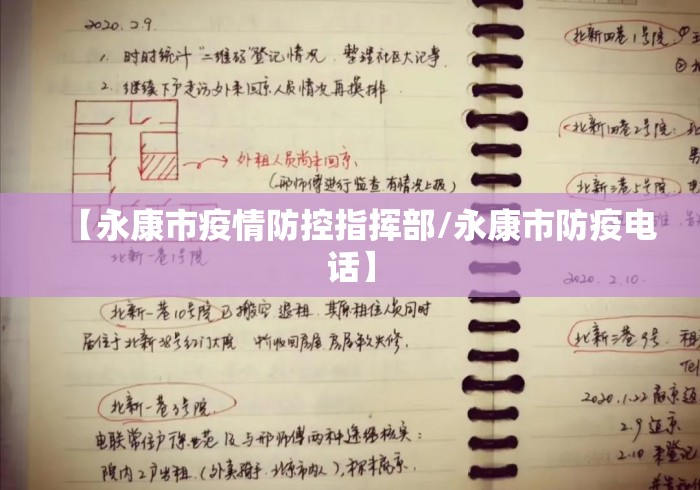 2020.2.9.
1. 时时统计“二维码”登记情况. 整理社区大记事
2. 继续下户走访外来回京人员情况再摸排.
外租人员尚未回京.
(邢师傅进行监查 有情况上报)
【永康市疫情防控指挥部/永康市防疫电
话】
北新一巷1号院
北新一巷10号院 已搬空 退租. 其原租住人员同时
居住于北新38号红门大院
北新一巷3号院.
电联常住户 及与邢师傅两种途径核实:
院内2户出租.
北新四巷1号院
北新四巷2号院:
北新三巷5号院.
2020. 2.10.
北新三巷9号. 租
Tel
2020.1.22 离京返
2.9 返京
2.10 来登记